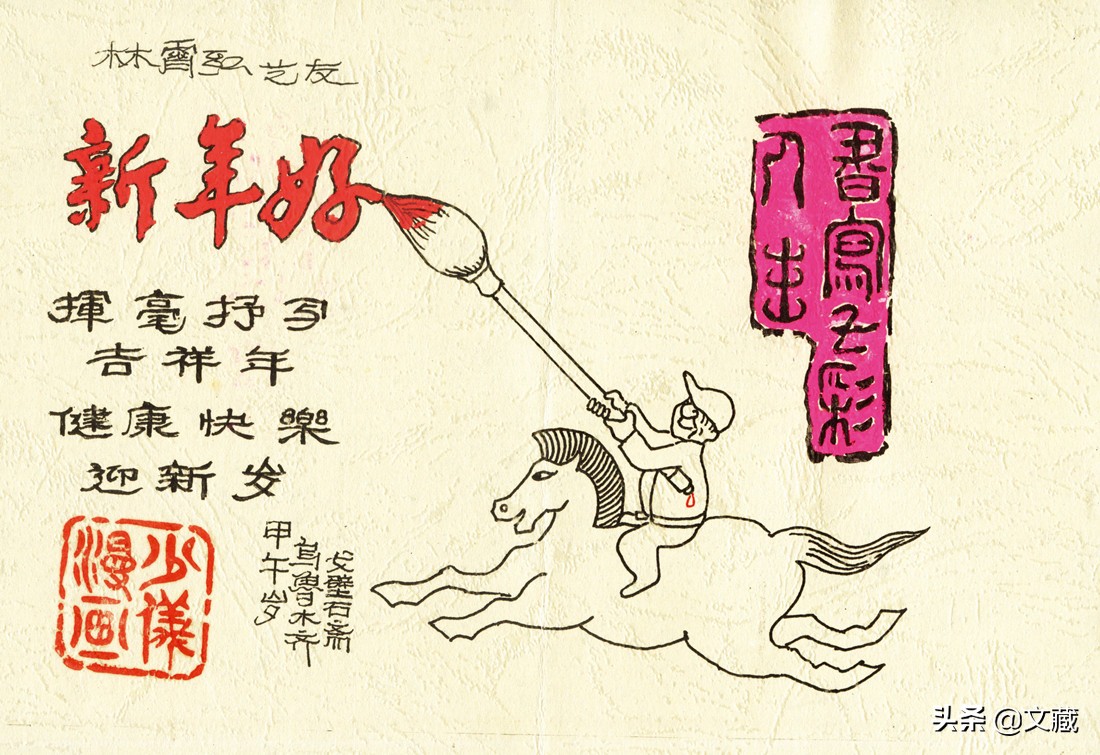 林霄弘艺友
新年好
揮毫抒写
吉祥年
健康快樂
迎新岁
少儀
漫画
戈壁石斋
烏魯木齐
甲午岁
書寫五彩
人生
头条 @文藏